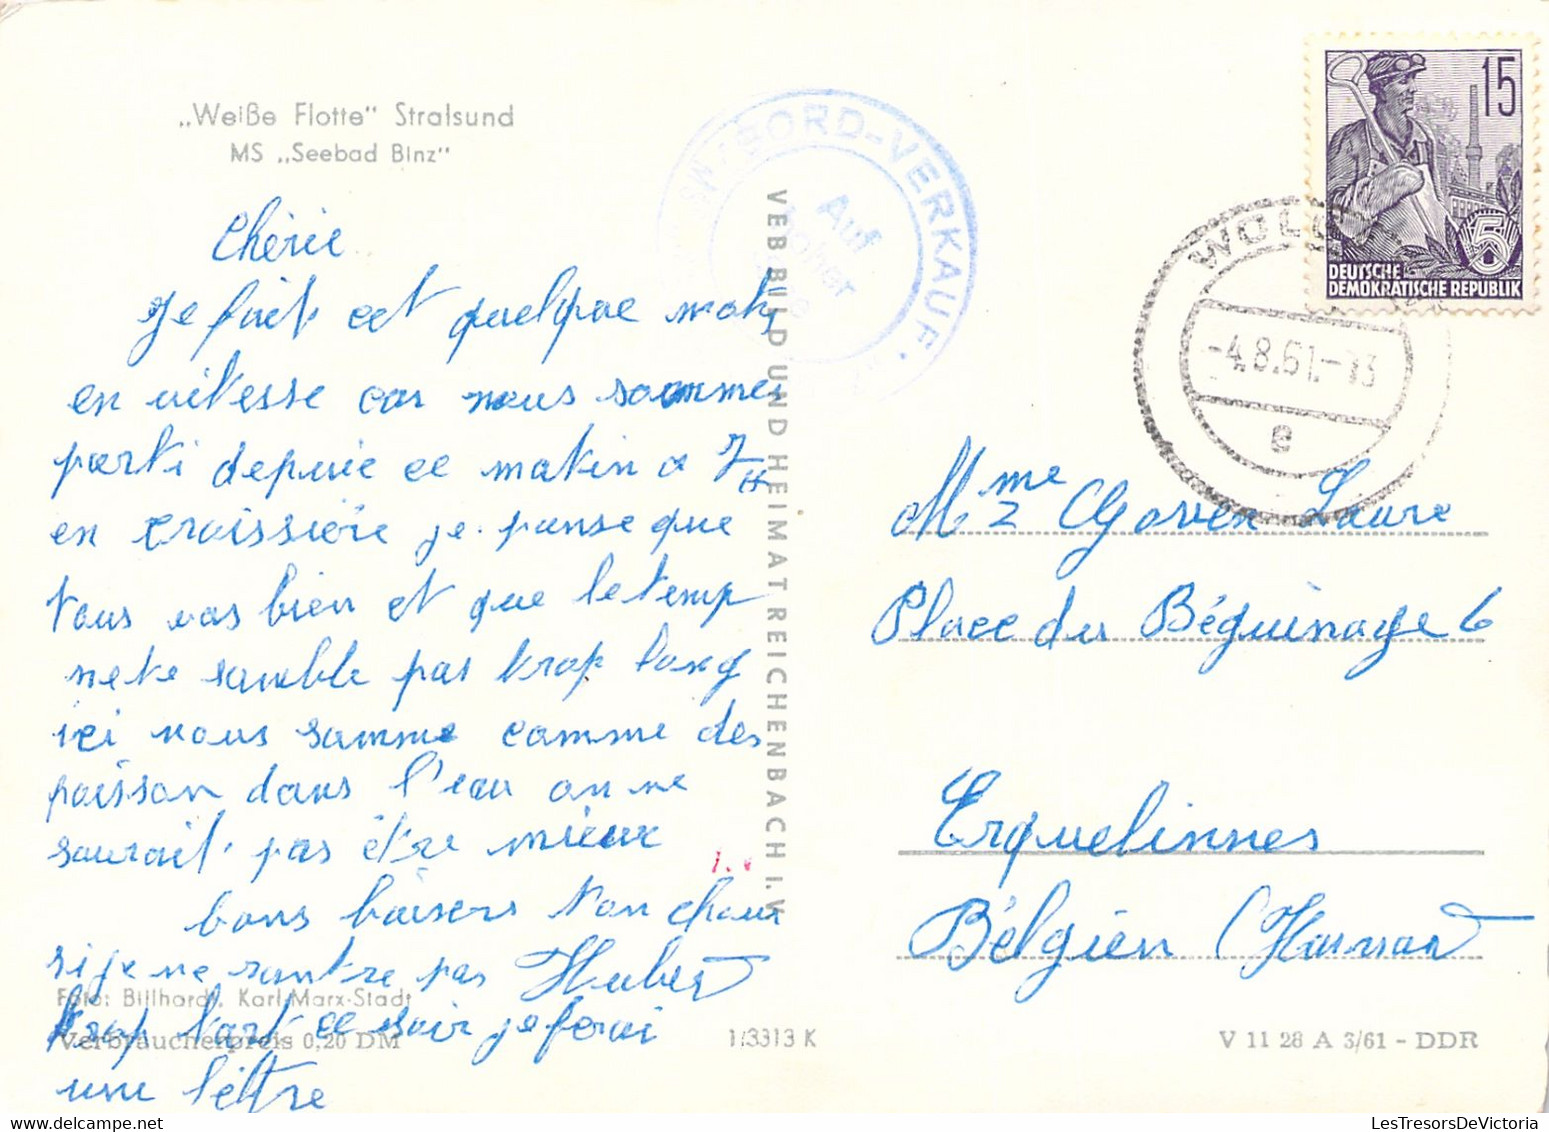 „Weiße Flotte" Stralsund
MS „Seebad Binz"
Chérie
je fait cet quelque mots
en vitesse car nous sommes
parti depuie ce matin a 7 H
en croissière je panse que
tous vas bien et que le temp
ne te samble pas trop long
ici nous somme comme des
poisson dans l'eau on ne
saurait pas être mieux
bons baisers ton choux
si je ne rantre pas Hubert
trop tart ce soir je ferai
une lèttre
Foto: Billhardt, Karl-Marx-Stadt
Verbraucherpreis 0,20 DM
1/3313 K
V 11 28 A 3/61 - DDR
VEB BILD UND HEIMAT REICHENBACH I. V.
BORD-VERKAUF
Auf
hoher
15
DEUTSCHE
DEMOKRATISCHE REPUBLIK
5
-4.8.61.-13
e
Mme Laure
Place du Béguinage 6
Erquelinnes
Bélgien (Hainaut
LesTresorsDeVictoria.com